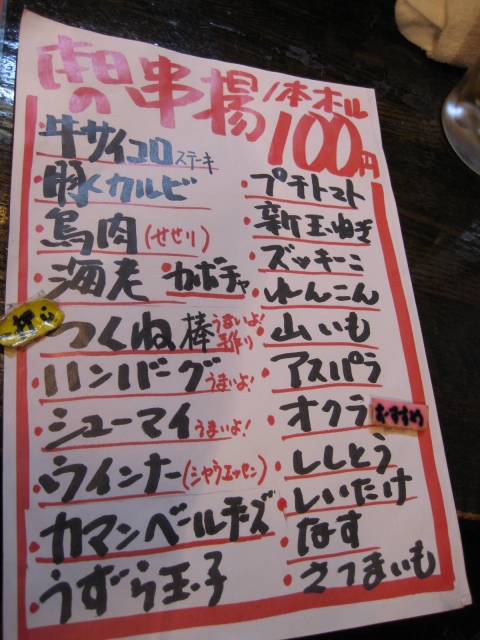 本日の串揚1本オール
100円
牛サイコロステーキ
豚カルビ
鳥肉(せせり)
海老 カボチャ
つくね棒 うまいよ!手作り
ハンバーグ うまいよ!
シューマイ うまいよ!
ウインナー(シャウエッセン)
カマンベールチーズ
うずら玉子
プチトマト
新玉ねぎ
ズッキーニ
れんこん
山いも
アスパラ
オクラ おすすめ
ししとう
しいたけ
なす
さつまいも